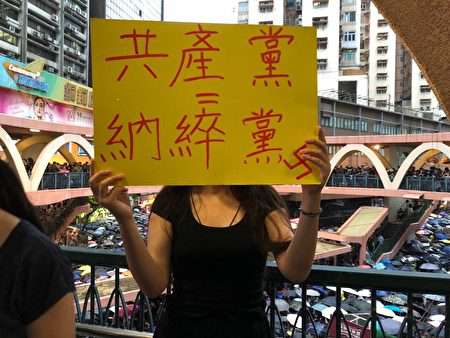 共產黨
=
納綷黨卐